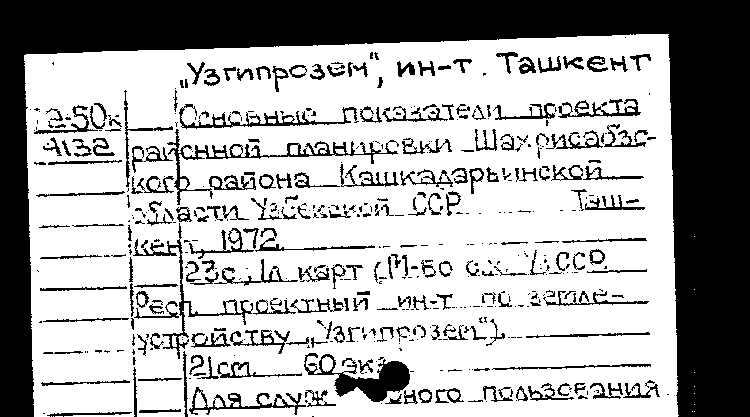 „Узгипрозем", ин-т. Ташкент
12-50к Основные показатели проекта
4132 районной планировки Шахрисабзс-
кого района Кашкадарьинской
области Узбекской ССР Таш-
кент, 1972.
23с; 1л карт (М-во с.х. УзССР.
Респ. проектный ин-т по земле-
устройству „Узгипрозем").
21см. 60 экз
Для служ ного пользования